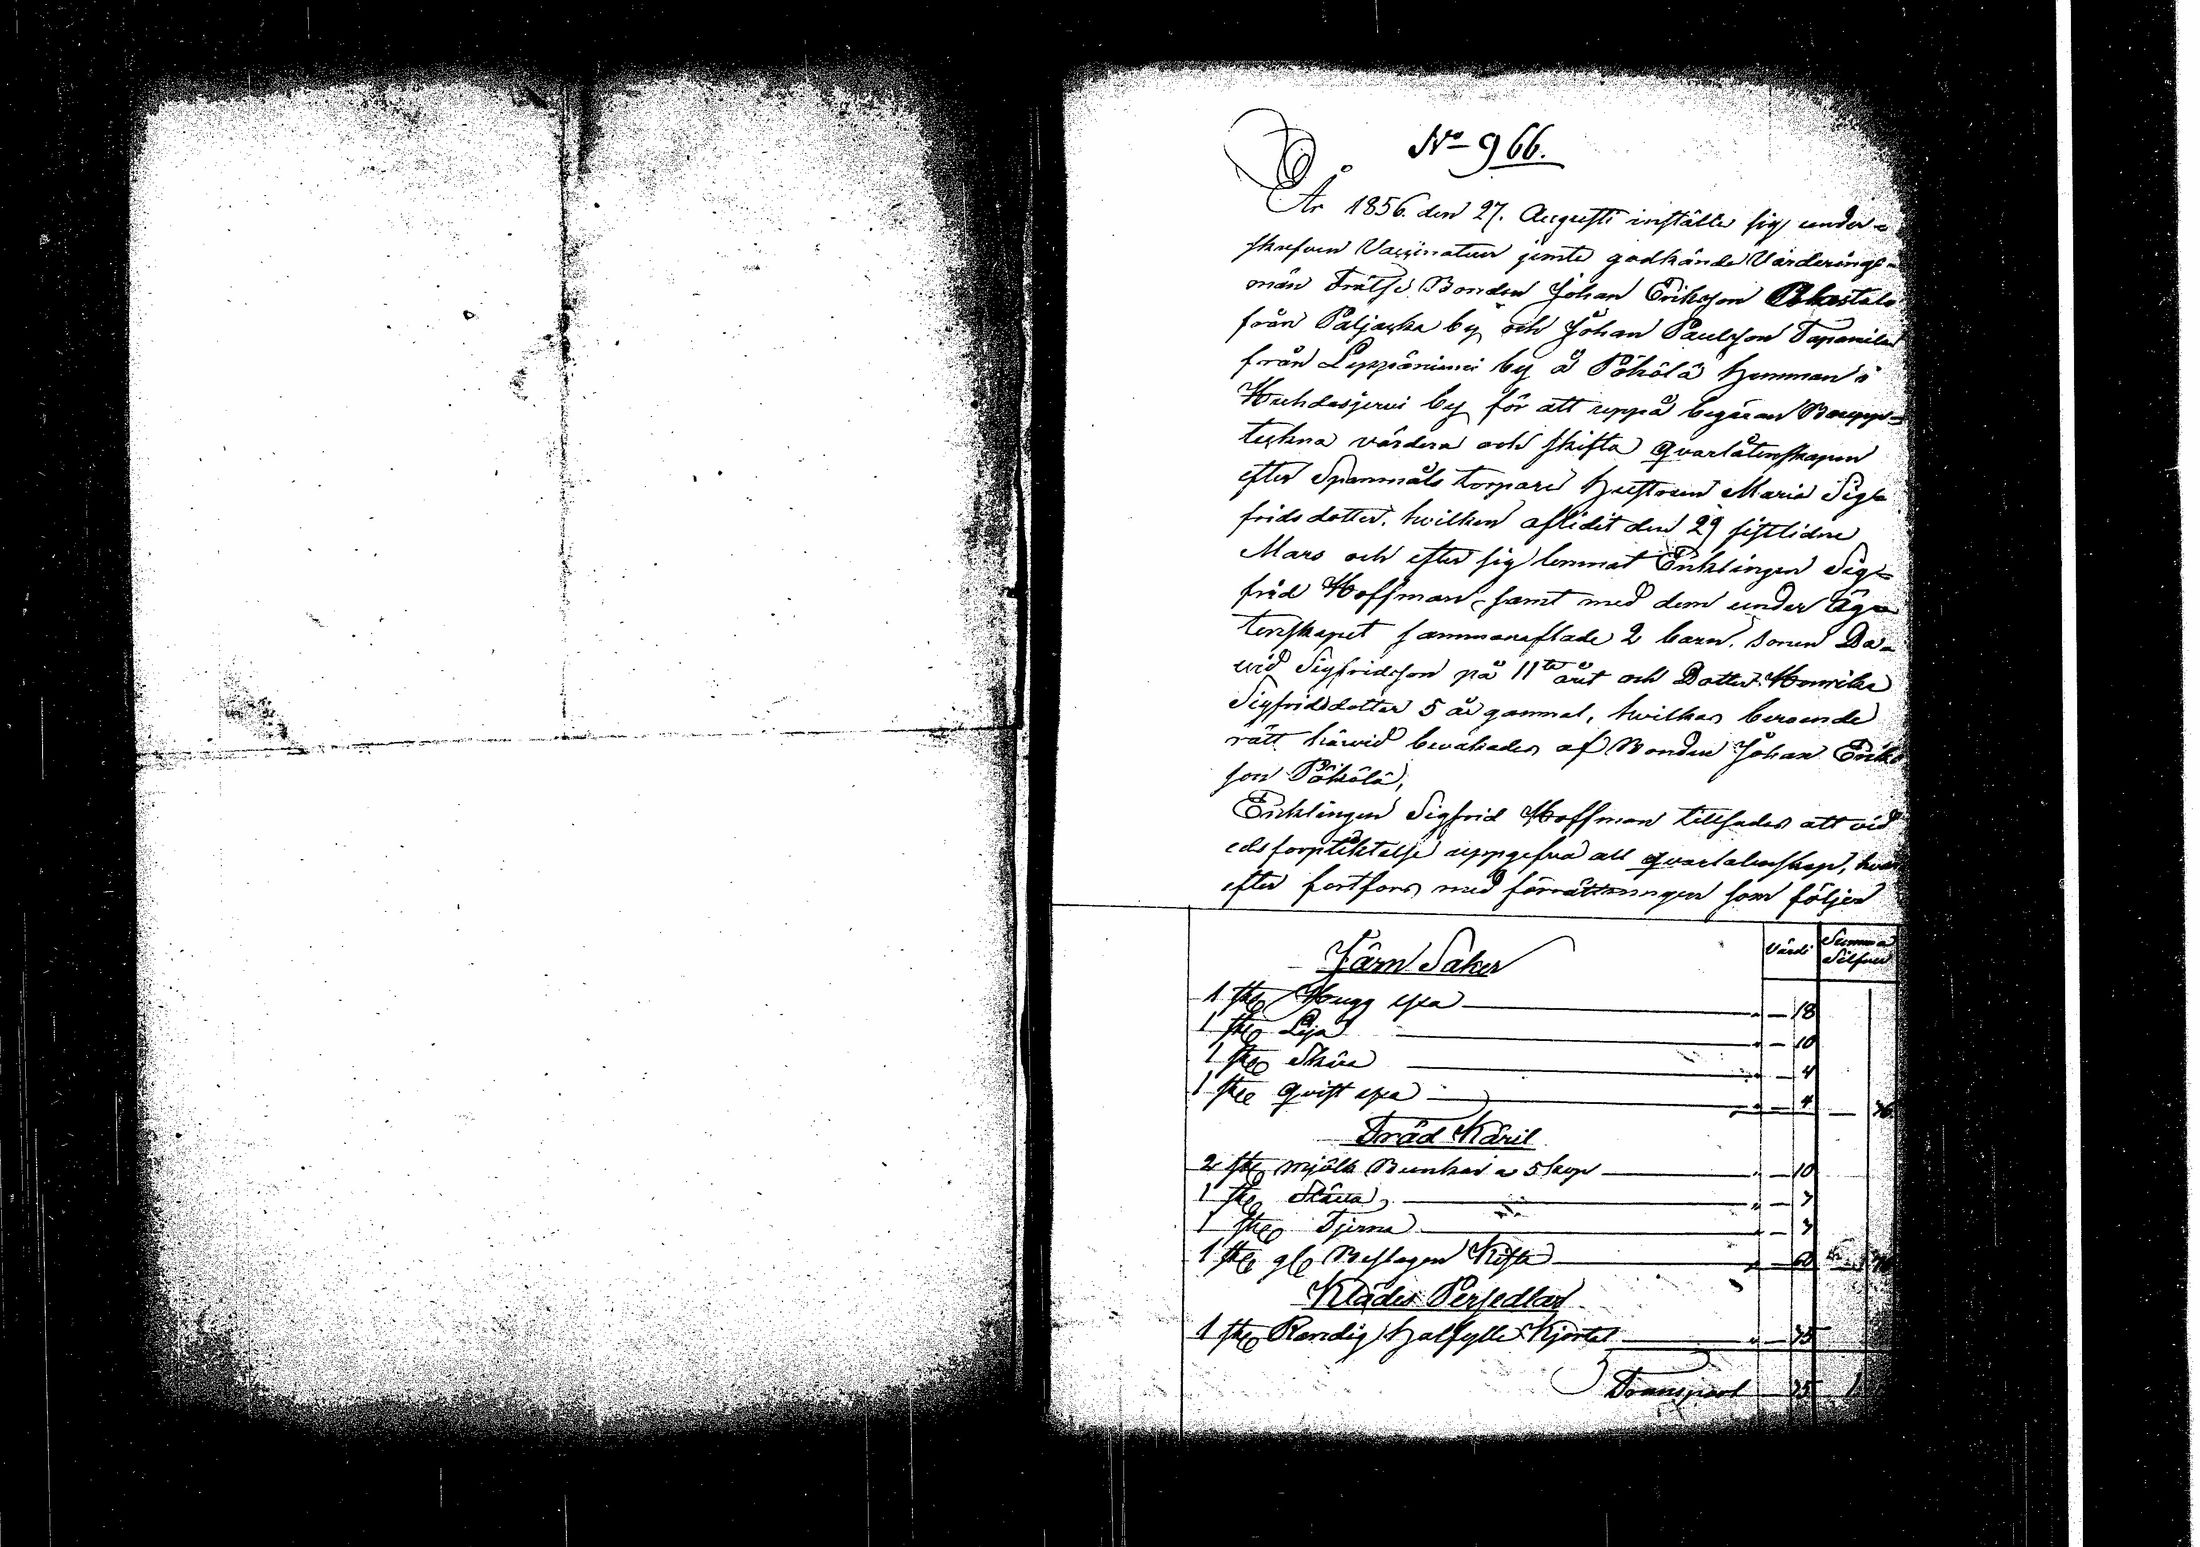 No 966.
År 1856 den 27. Augusti instälte sig under-
skrefven Vaccinatuer jemte godkände Värderings-
män Frälse Bonden Johan Eriksson
från Paljacka by och Johan Paulsson Tapanila
från Leppäniemi by å Pökölä hemman i
Kuhdesjervi by för att uppå begäran Boupp-
teckna värdera och skifta qvarlåtenskapen
efter Spanmåls torpare hustrun Maria Sig-
frids dotter, hvilken aflidit den 29 sistlidne
Mars och efter sig lemnat Enklingen Sig-
frid Hoffman, samt med dem under Ägta-
tenskapet sammanaflade 2 barn. sonen Da-
vid Sigfridsson på 11te året och Dotter Henrika
Sigfridsdotter 5 år gammal, hvilkas beroende
rätt härvid bevakades af Bonden Johan Eriks
son Pökölä,
Enklingen Sigfrid Hoffman tillsades att vid
eds förpliktelse uppgefva all qvarlatenskap, hvar
efter fortfors med förrättningen som följer
Järn Saker Värde Summa Silfver
1 stk Hugg yxa " — 18
1 stk Lija " — 10
1 stk Skära " — 4
1 stk qvist yxa " — 4 — 36
Träd Käril
2 stk mjölk Bunkar a 5 kop " — 10
1 stk Stäva " — 7
1 stk Tjerna " — 7
1 stk gl Beslagen Kista " — 60
Klädes Persedlar
1 stk Randig halfylle Kjortel " — 75
Transport — 75 1